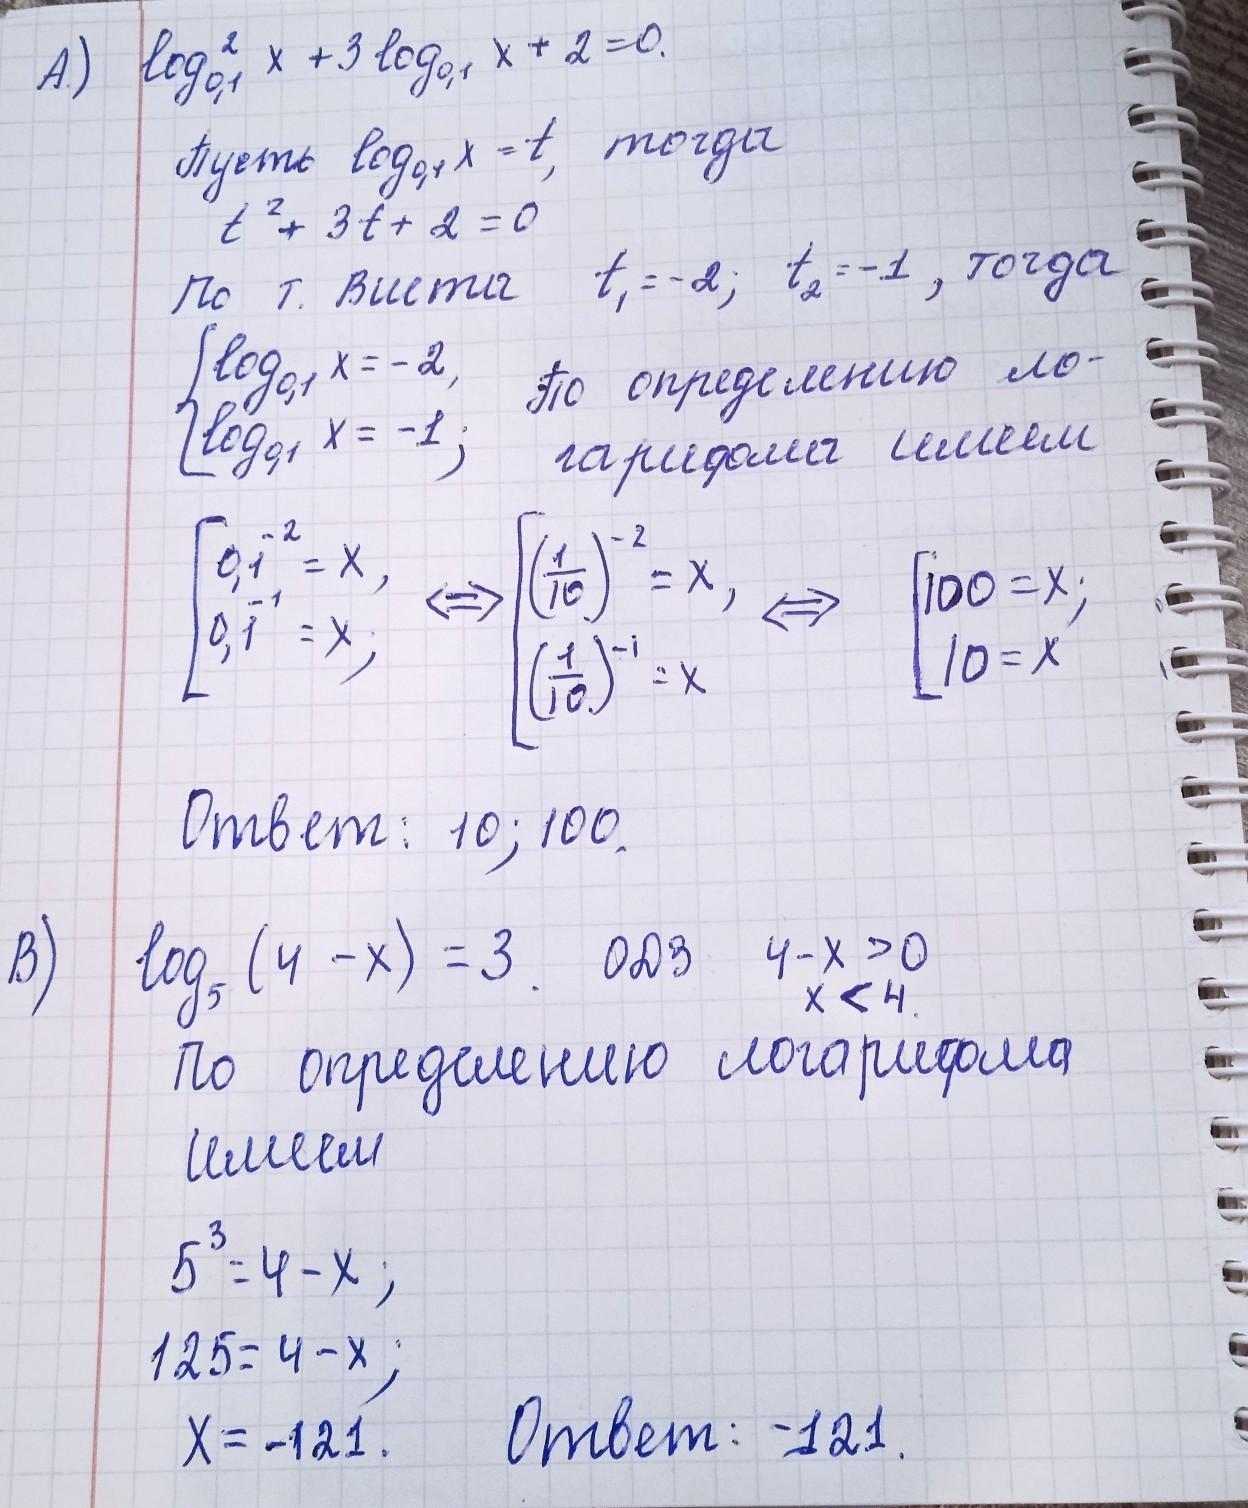 А.) log²₀,₁ x + 3 log₀,₁ x + 2 = 0.
Пусть log₀,₁ x = t, тогда
t² + 3t + 2 = 0
По т. Виета t₁ = -2; t₂ = -1, тогда
[log₀,₁ x = -2, По определению ло-
log₀,₁ x = -1; гарифома имеем
[0,1⁻² = x, ⇔ [(1/10)⁻² = x, ⇔ [100 = x;
0,1⁻¹ = x; (1/10)⁻¹ = x 10 = x
Ответ: 10; 100.
В) log₅ (4 - x) = 3. ОДЗ 4 - x > 0
x < 4.
По определению логарифома
имеем
5³ = 4 - x;
125 = 4 - x;
x = -121. Ответ: -121.